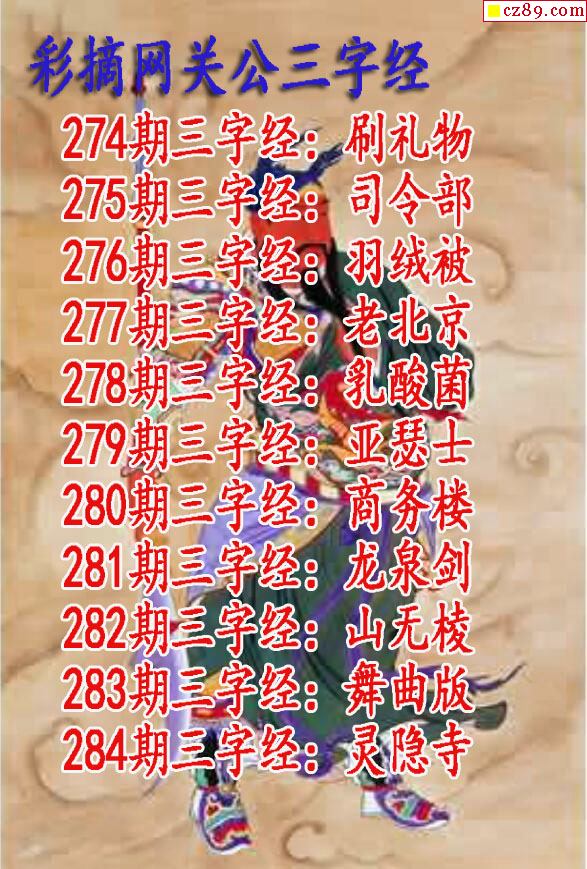 cz89.com
彩摘网关公三字经
274期三字经：刷礼物
275期三字经：司令部
276期三字经：羽绒被
277期三字经：老北京
278期三字经：乳酸菌
279期三字经：亚瑟士
280期三字经：商务楼
281期三字经：龙泉剑
282期三字经：山无棱
283期三字经：舞曲版
284期三字经：灵隐寺